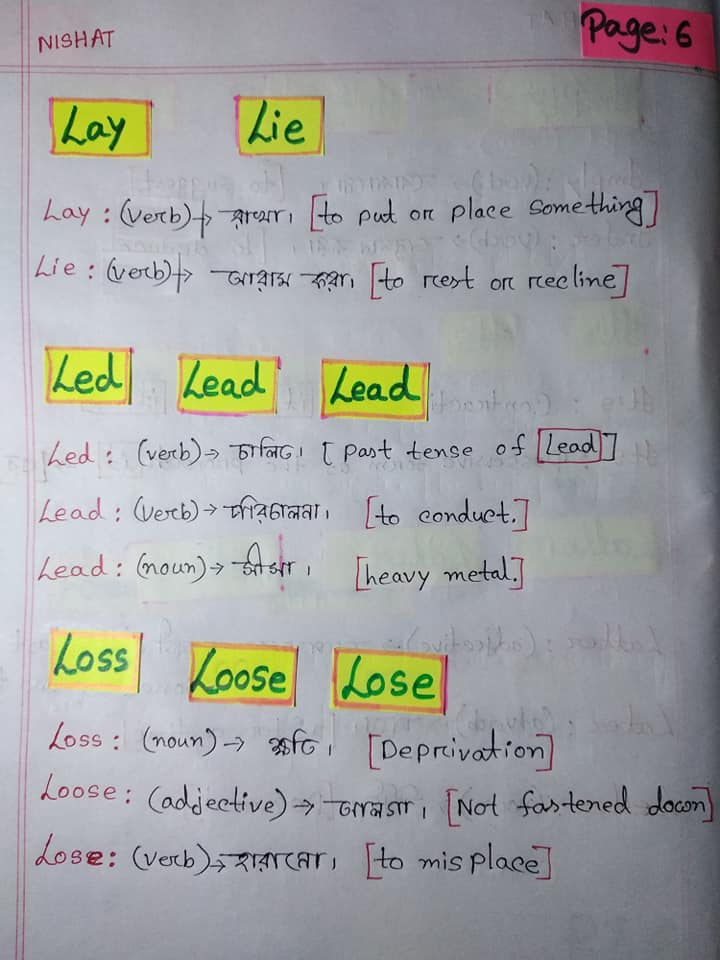 NISHAT
Page: 6
Lay Lie
Lay : (verb) → রাখা। [to put or place something]
Lie : (verb) → আরাম করা। [to rest or recline]
Led Lead Lead
Led : (verb) → চালিত। [past tense of Lead]
Lead : (verb) → পরিচালনা। [to conduct.]
Lead : (noun) → সীসা। [heavy metal.]
Loss Loose Lose
Loss : (noun) → ক্ষতি। [Deprivation]
Loose : (adjective) → আলগা। [Not fastened down]
Lose : (verb) → হারানো। [to misplace]